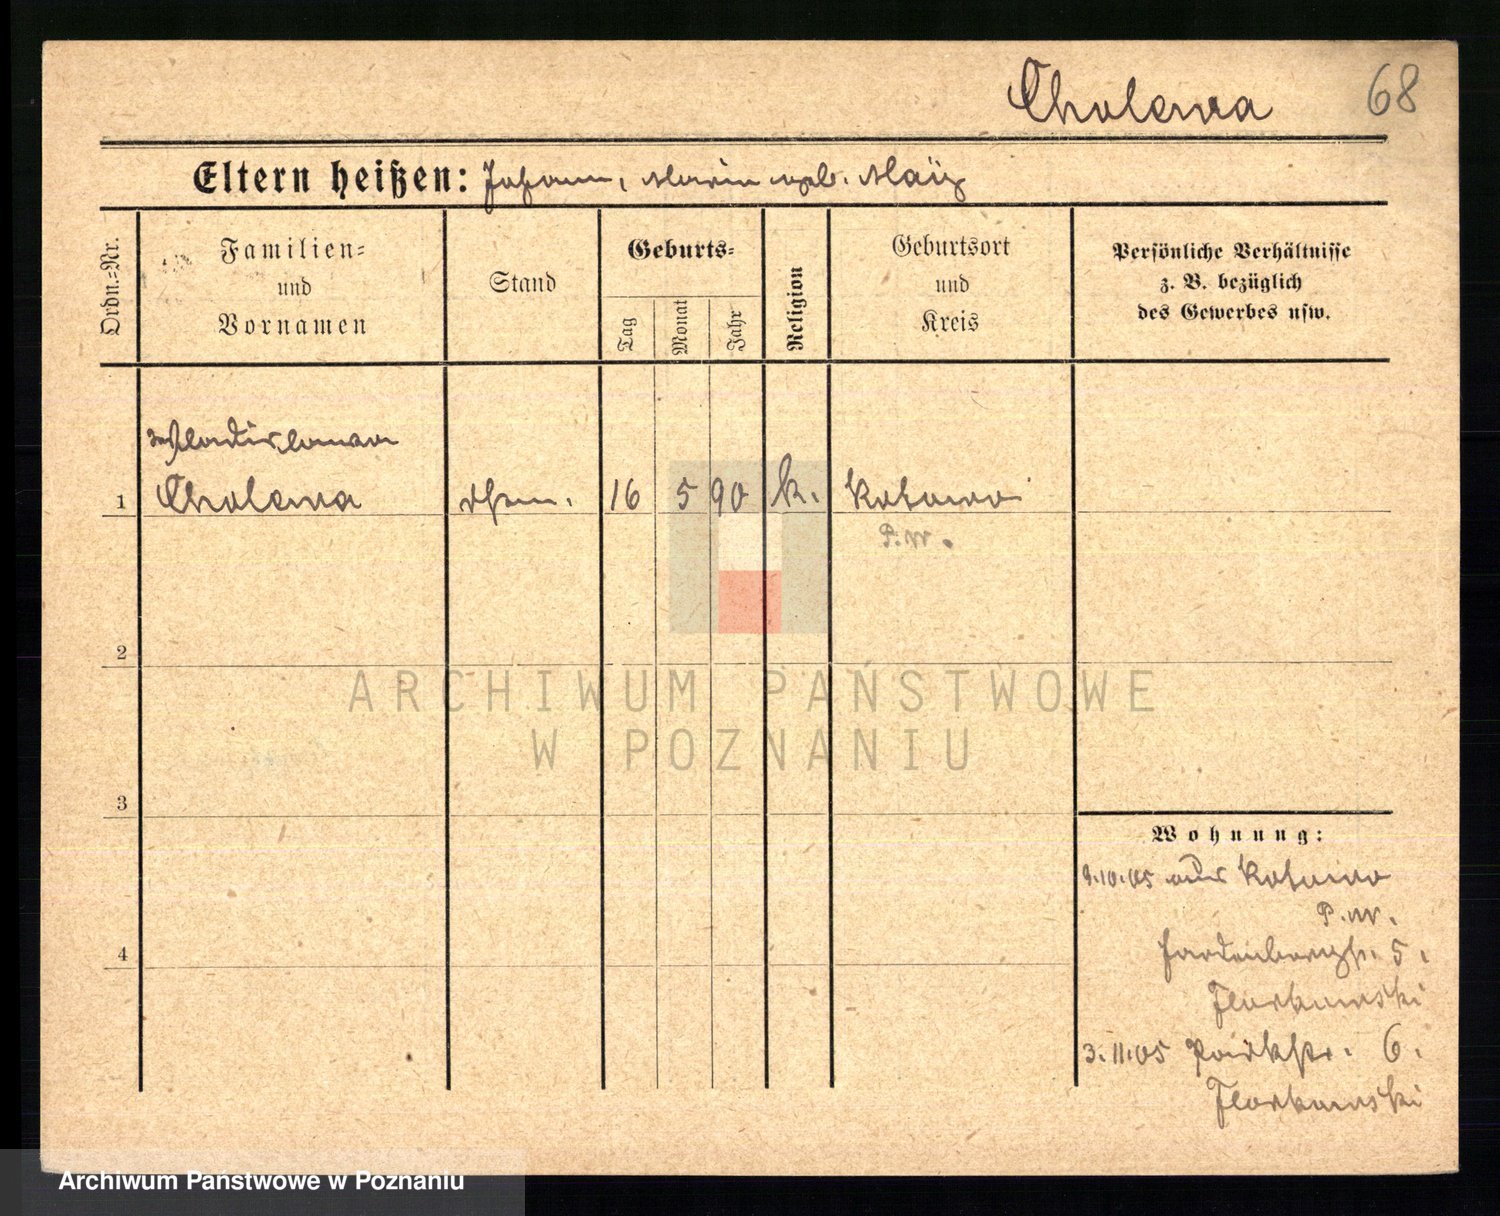 Cholewa 68
Eltern heißen: Johann, Maria geb. Maÿ
Ordn.=Nr.
Familien=
und
Vornamen
Stand
Geburts=
Tag
Monat
Jahr
Religion
Geburtsort
und
Kreis
Persönliche Verhältnisse
z. B. bezüglich
des Gewerbes usw.
Wladislawa
1 Cholewa 16 5 90 k. Kotowo
P.W.
2
3
4
Wohnung:
9.10.05 aus Kotowo
P.W.
Hardenbergstr. 5.
Florkowski
3.11.05 Parkstr. 6.
Florkowski
ARCHIWUM PAŃSTWOWE
W POZNANIU
Archiwum Państwowe w Poznaniu